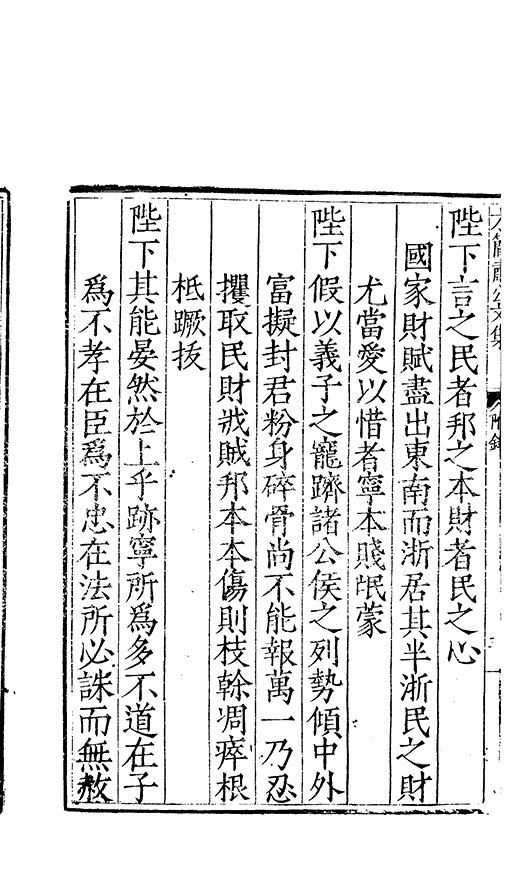 簡肅公文集 附錄
陛下言之民者邦之本財者民之心
國家財賦盡出東南而浙居其半浙民之財
尤當愛以惜者寧本賤氓蒙
陛下假以義子之寵躋諸公侯之列勢傾中外
富擬封君粉身碎骨尚不能報萬一乃忍
攫取民財戕賊邦本本傷則枝榦凋瘁根
柢蹶拔
陛下其能晏然於上乎跡寧所爲多不道在子
爲不孝在臣爲不忠在法所必誅而無赦